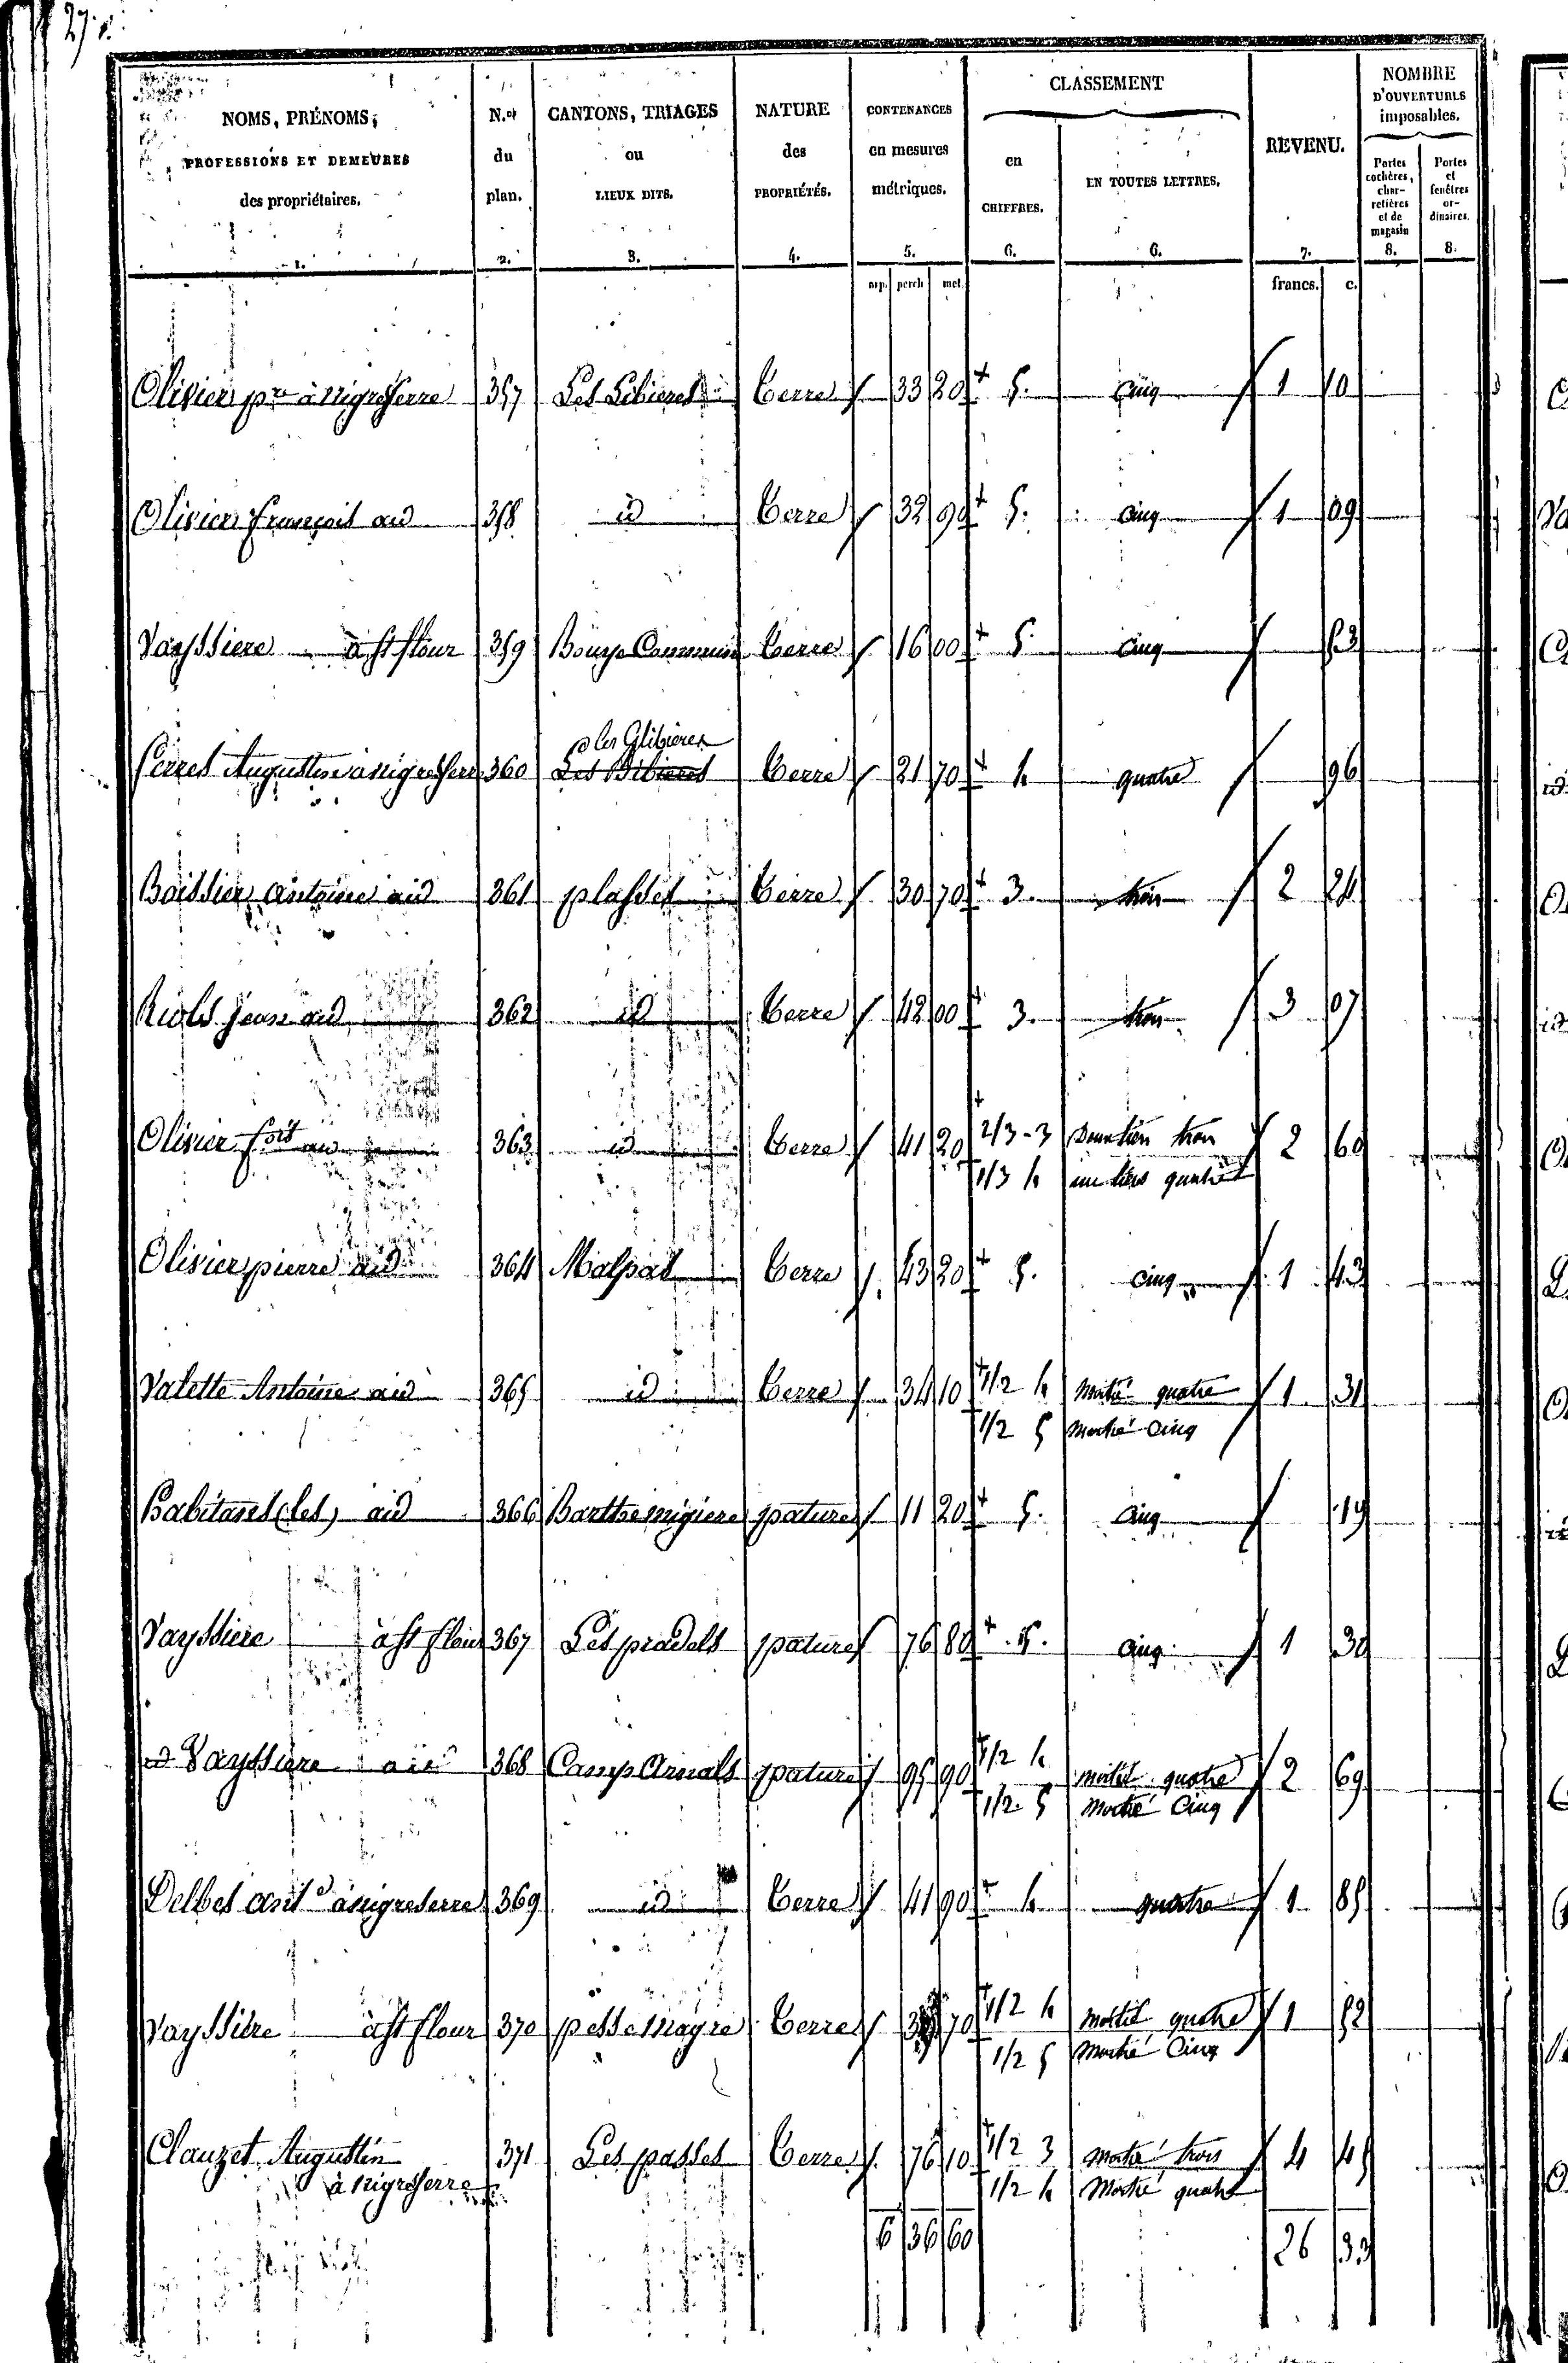 27.
NOMS, PRÉNOMS, PROFESSIONS ET DEMEURES des propriétaires. 1.
N.os du plan. 2.
CANTONS, TRIAGES ou LIEUX DITS. 3.
NATURE des PROPRIÉTÉS. 4.
CONTENANCES en mesures métriques. 5.
CLASSEMENT
en CHIFFRES. 6.
EN TOUTES LETTRES. 6.
REVENU. 7.
NOMBRE D'OUVERTURES imposables.
Portes cochères, charretières et de magasin 8.
Portes et fenêtres ordinaires. 8.
arp. perch. met. francs. c.
Olivier pre à nigreserre 357 Les Libieres Terre 33 20 5. cinq 1 10
Olivier françois aud 358 id Terre 32 90 5. cinq 1 09
Vayssiere à st flour 359 Bouys Commun Terre 16 00 5 cinq 53
les Glibieres
Serres Augustin à nigreserre 360 Les Bibieres Terre 21 70 4 quatre 96
Boissier antoine aud 361 plasses Terre 30 70 3. trois 2 24
Riols jean aud 362 id Terre 42 00 3. trois 3 07
Olivier fois aud 363 id Terre 41 20 2/3 - 3 Deux tiers trois 2 60
1/3 4 un tiers quatre
Olivier pierre aud 364 Malpas Terre 43 20 5. cinq 1 43
Valette Antoine aud 365 id Terre 34 10 1/2 4 moitié quatre 1 31
1/2 5 moitié cinq
habitans (les) aud 366 Barthe migiere pature 11 20 5. cinq 19
Vayssiere à st flour 367 Les pradels pature 76 80 5. cinq 1 30
id Vayssiere aud 368 Camp Arnals pature 95 90 1/2 4 moitié quatre 2 69
1/2 5 moitié Cinq
Delbes ant à nigreserre 369 id Terre 41 90 4 quatre 1 85
Vayssiere à st flour 370 pesse magre Terre 70 1/2 4 moitié quatre 1 52
1/2 5 moitié Cinq
Clauzet Augustin 371 Les passes Terre 76 10 1/2 3 moitié trois 4 45
à nigreserre 1/2 4 Moitié quatre
6 36 60 26 33